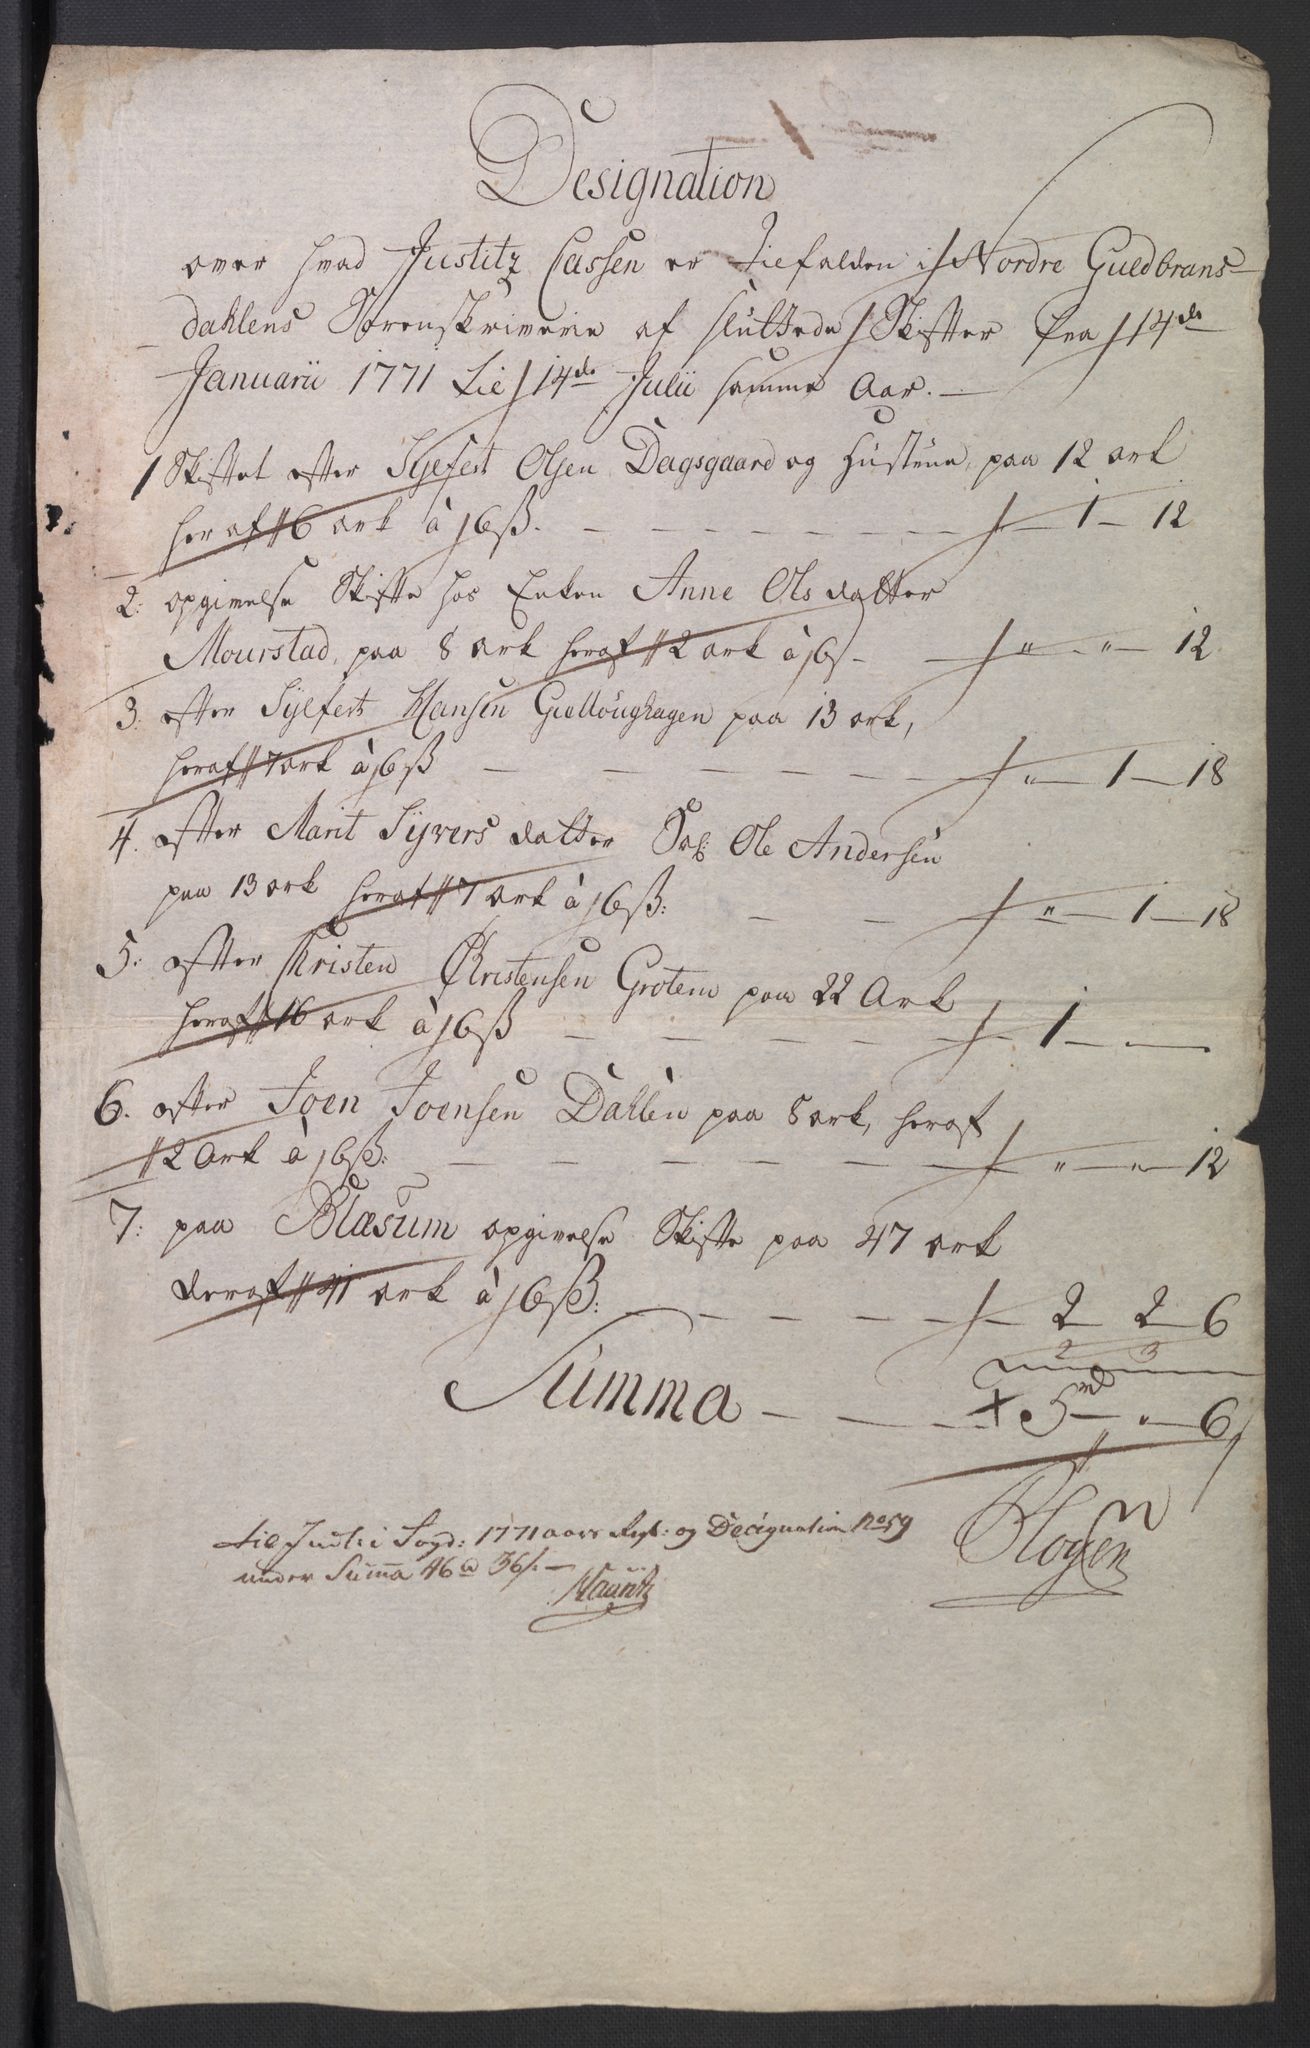 Designation
over hvad Justitz Cassen er tilfalden i Nordre Guldbrans-
dahlens Sorenskriverie af sluttede Skifter fra 14de
Januarii 1771 til 14de Julii samme Aar.
1 Skiftet efter Sylfest Olsen Dagsgaard og Hustrue, paa 12 ark
heraf 6 ark à 6ß. — 1 — 12
2: opgivelse Skifte hos Enken Anne Olsdatter
Mourstad, paa 8 ark heraf 2 ark à 6ß — „ — „ — 12
3. efter Sylfest Hansen paa 13 ark,
heraf 7 ark à 6ß — „ — 1 — 18
4. efter Marit Syversdatter Ole Andersen
paa 13 ark heraf 7 ark à 6ß: — „ — 1 — 18
5: efter Christen Christensen Grotem paa 22 Ark
heraf 16 ark à 6ß — 1 — —
6. efter Joen Joensen Dahlen paa 8 ark, heraf
2 Ark à 6ß: — „ — „ — 12
7: paa Blæsum opgivelse Skifte paa 47 ark
deraf 41 ark à 6ß: — 2 — 2 — 6
2 3
Summa — 5rd — „ — 6
til Justi: Sogd: 1771 aars Regl: og Decignation No 59
under Suma 46 rd 36 ß. —